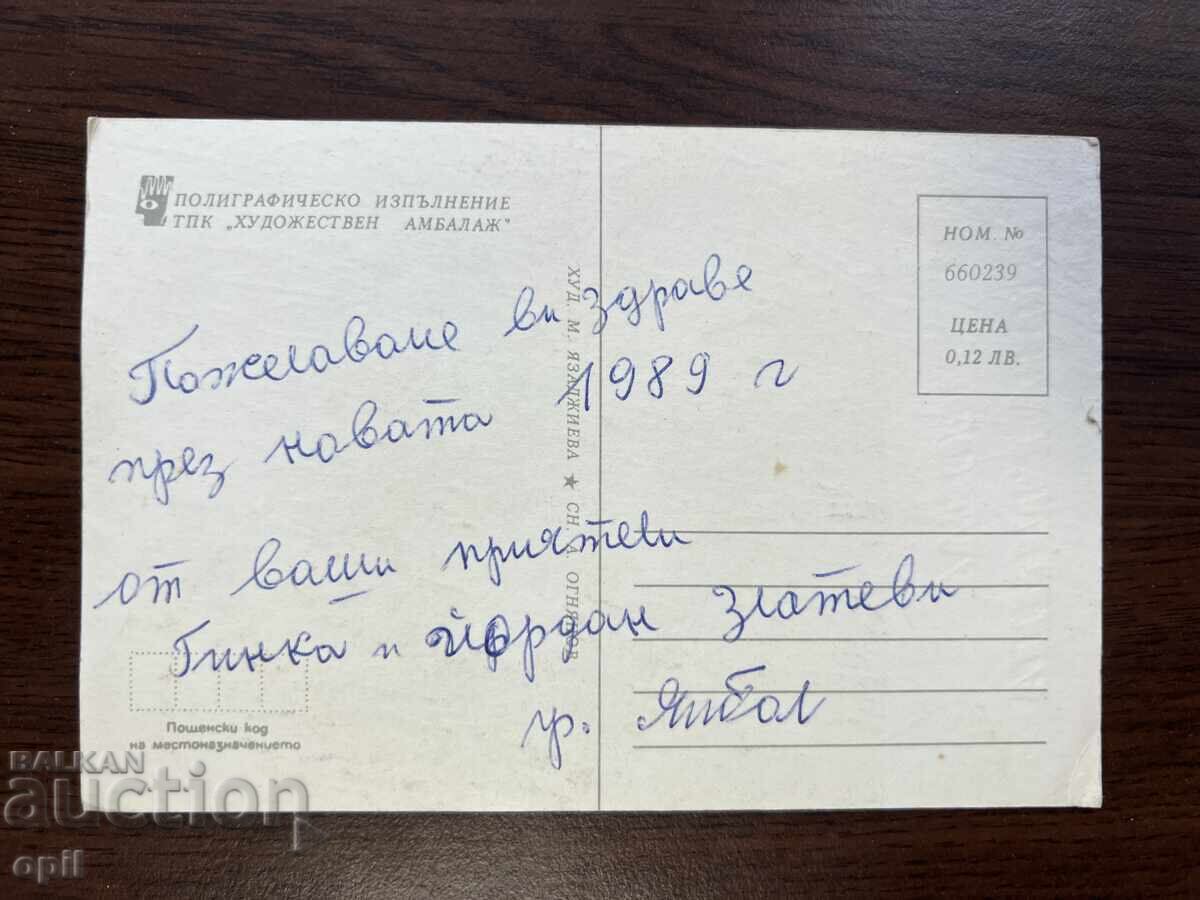 ПОЛИГРАФИЧЕСКО ИЗПЪЛНЕНИЕ
ТПК „ХУДОЖЕСТВЕН АМБАЛАЖ"
НОМ. №
660239
ЦЕНА
0,12 ЛВ.
ХУД. М. ЯЗАДЖИЕВА ★ СН. А. ОГНЯНОВ
Пожелаваме ви здраве
през новата 1989 г
от ваши приятели
Гинка и Йордан Златеви
гр. Ямбол
Пощенски код
на местоназначението
BALKAN
auction
opil